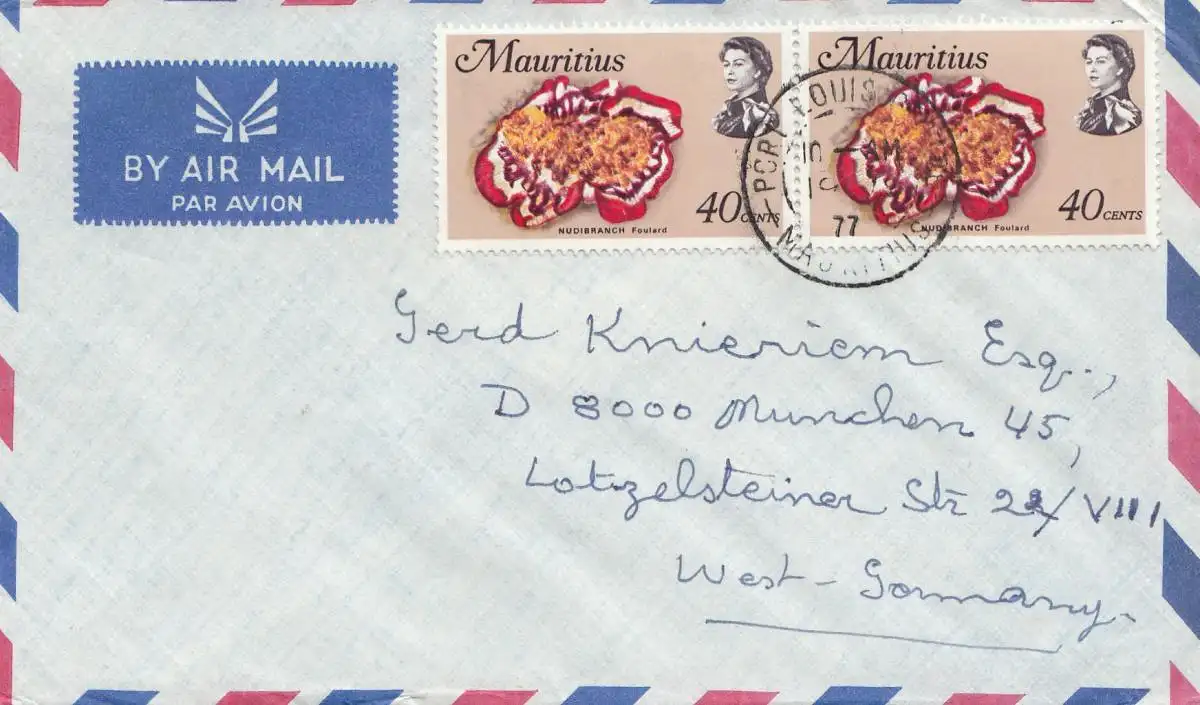 BY AIR MAIL
PAR AVION
Mauritius
NUDIBRANCH Foulard
40 CENTS
Mauritius
NUDIBRANCH Foulard
40 CENTS
PORT LOUIS
AM
77
MAURITIUS
Gerd Knieriem Esq.,
D 8000 Munchen 45,
Lotzelsteiner Str 22/VIII
West-Germany.